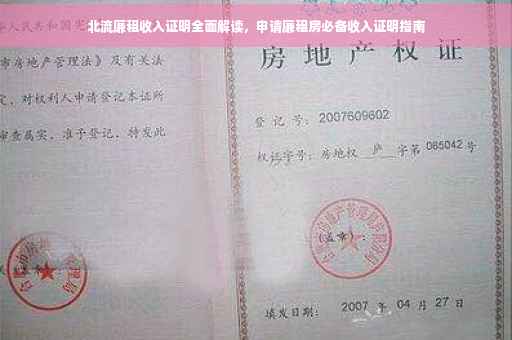 北流廉租收入证明全面解读，申请廉租房必备收入证明指南
人民共和国宪
市房地产管理法》及有关法
定，对权利人申请登记本证所
审查属实，准予登记，特发此
房地产权
登 记 号：2007609602
权证字号：房地权 庐 字第 085042 号
(盖章)：
填发日期：2007 年 04 月 27 日